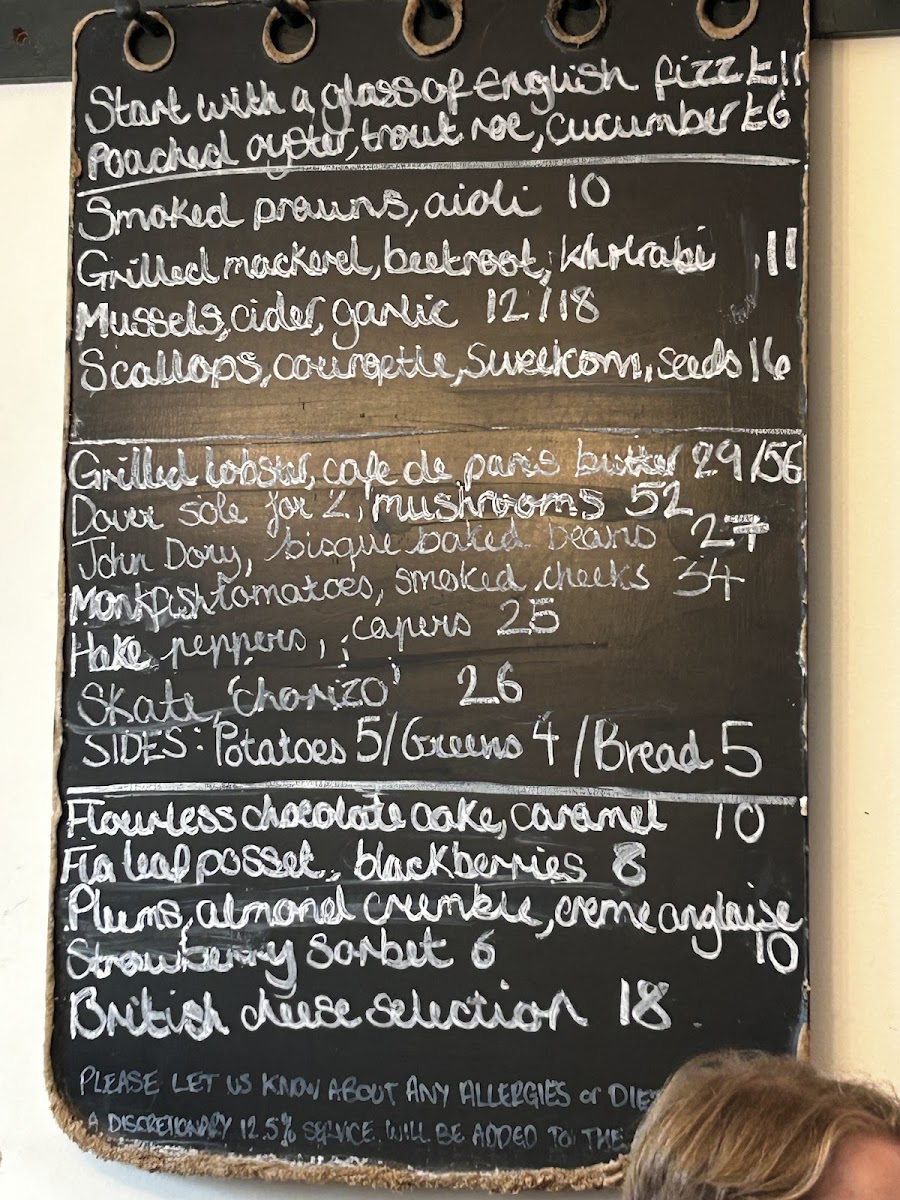 Start with a glass of English fizz £11
Poached oyster, trout roe, cucumber £6
Smoked prawns, aioli 10
Grilled mackerel, beetroot, kholrabi 11
Mussels, cider, garlic 12/18
Scallops, courgette, sweetcorn, seeds 16
Grilled lobster, cafe de paris butter 29/56
Dover sole for 2, mushrooms 52
John Dory, bisque baked beans 27
Monkfish tomatoes, smoked cheeks 34
Hake peppers, capers 25
Skate, 'chorizo' 26
SIDES: Potatoes 5/Greens 4/Bread 5
Flourless chocolate cake, caramel 10
Fig leaf posset, blackberries 8
Plums, almond crumble, creme anglaise
10
Strawberry sorbet 6
British cheese selection 18
PLEASE LET US KNOW ABOUT ANY ALLERGIES or DIE
A DISCRETIONARY 12.5% SERVICE WILL BE ADDED TO THE